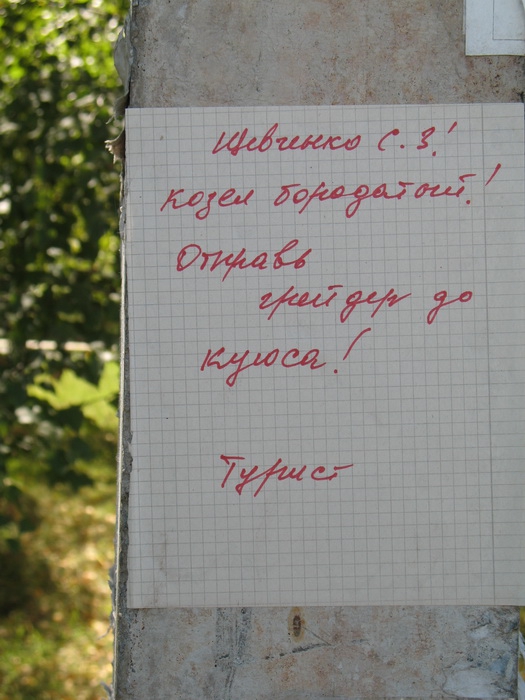 Шевченко С. З!
козел бородатый!
Отправь
грейдер до
Куюса!
Турист